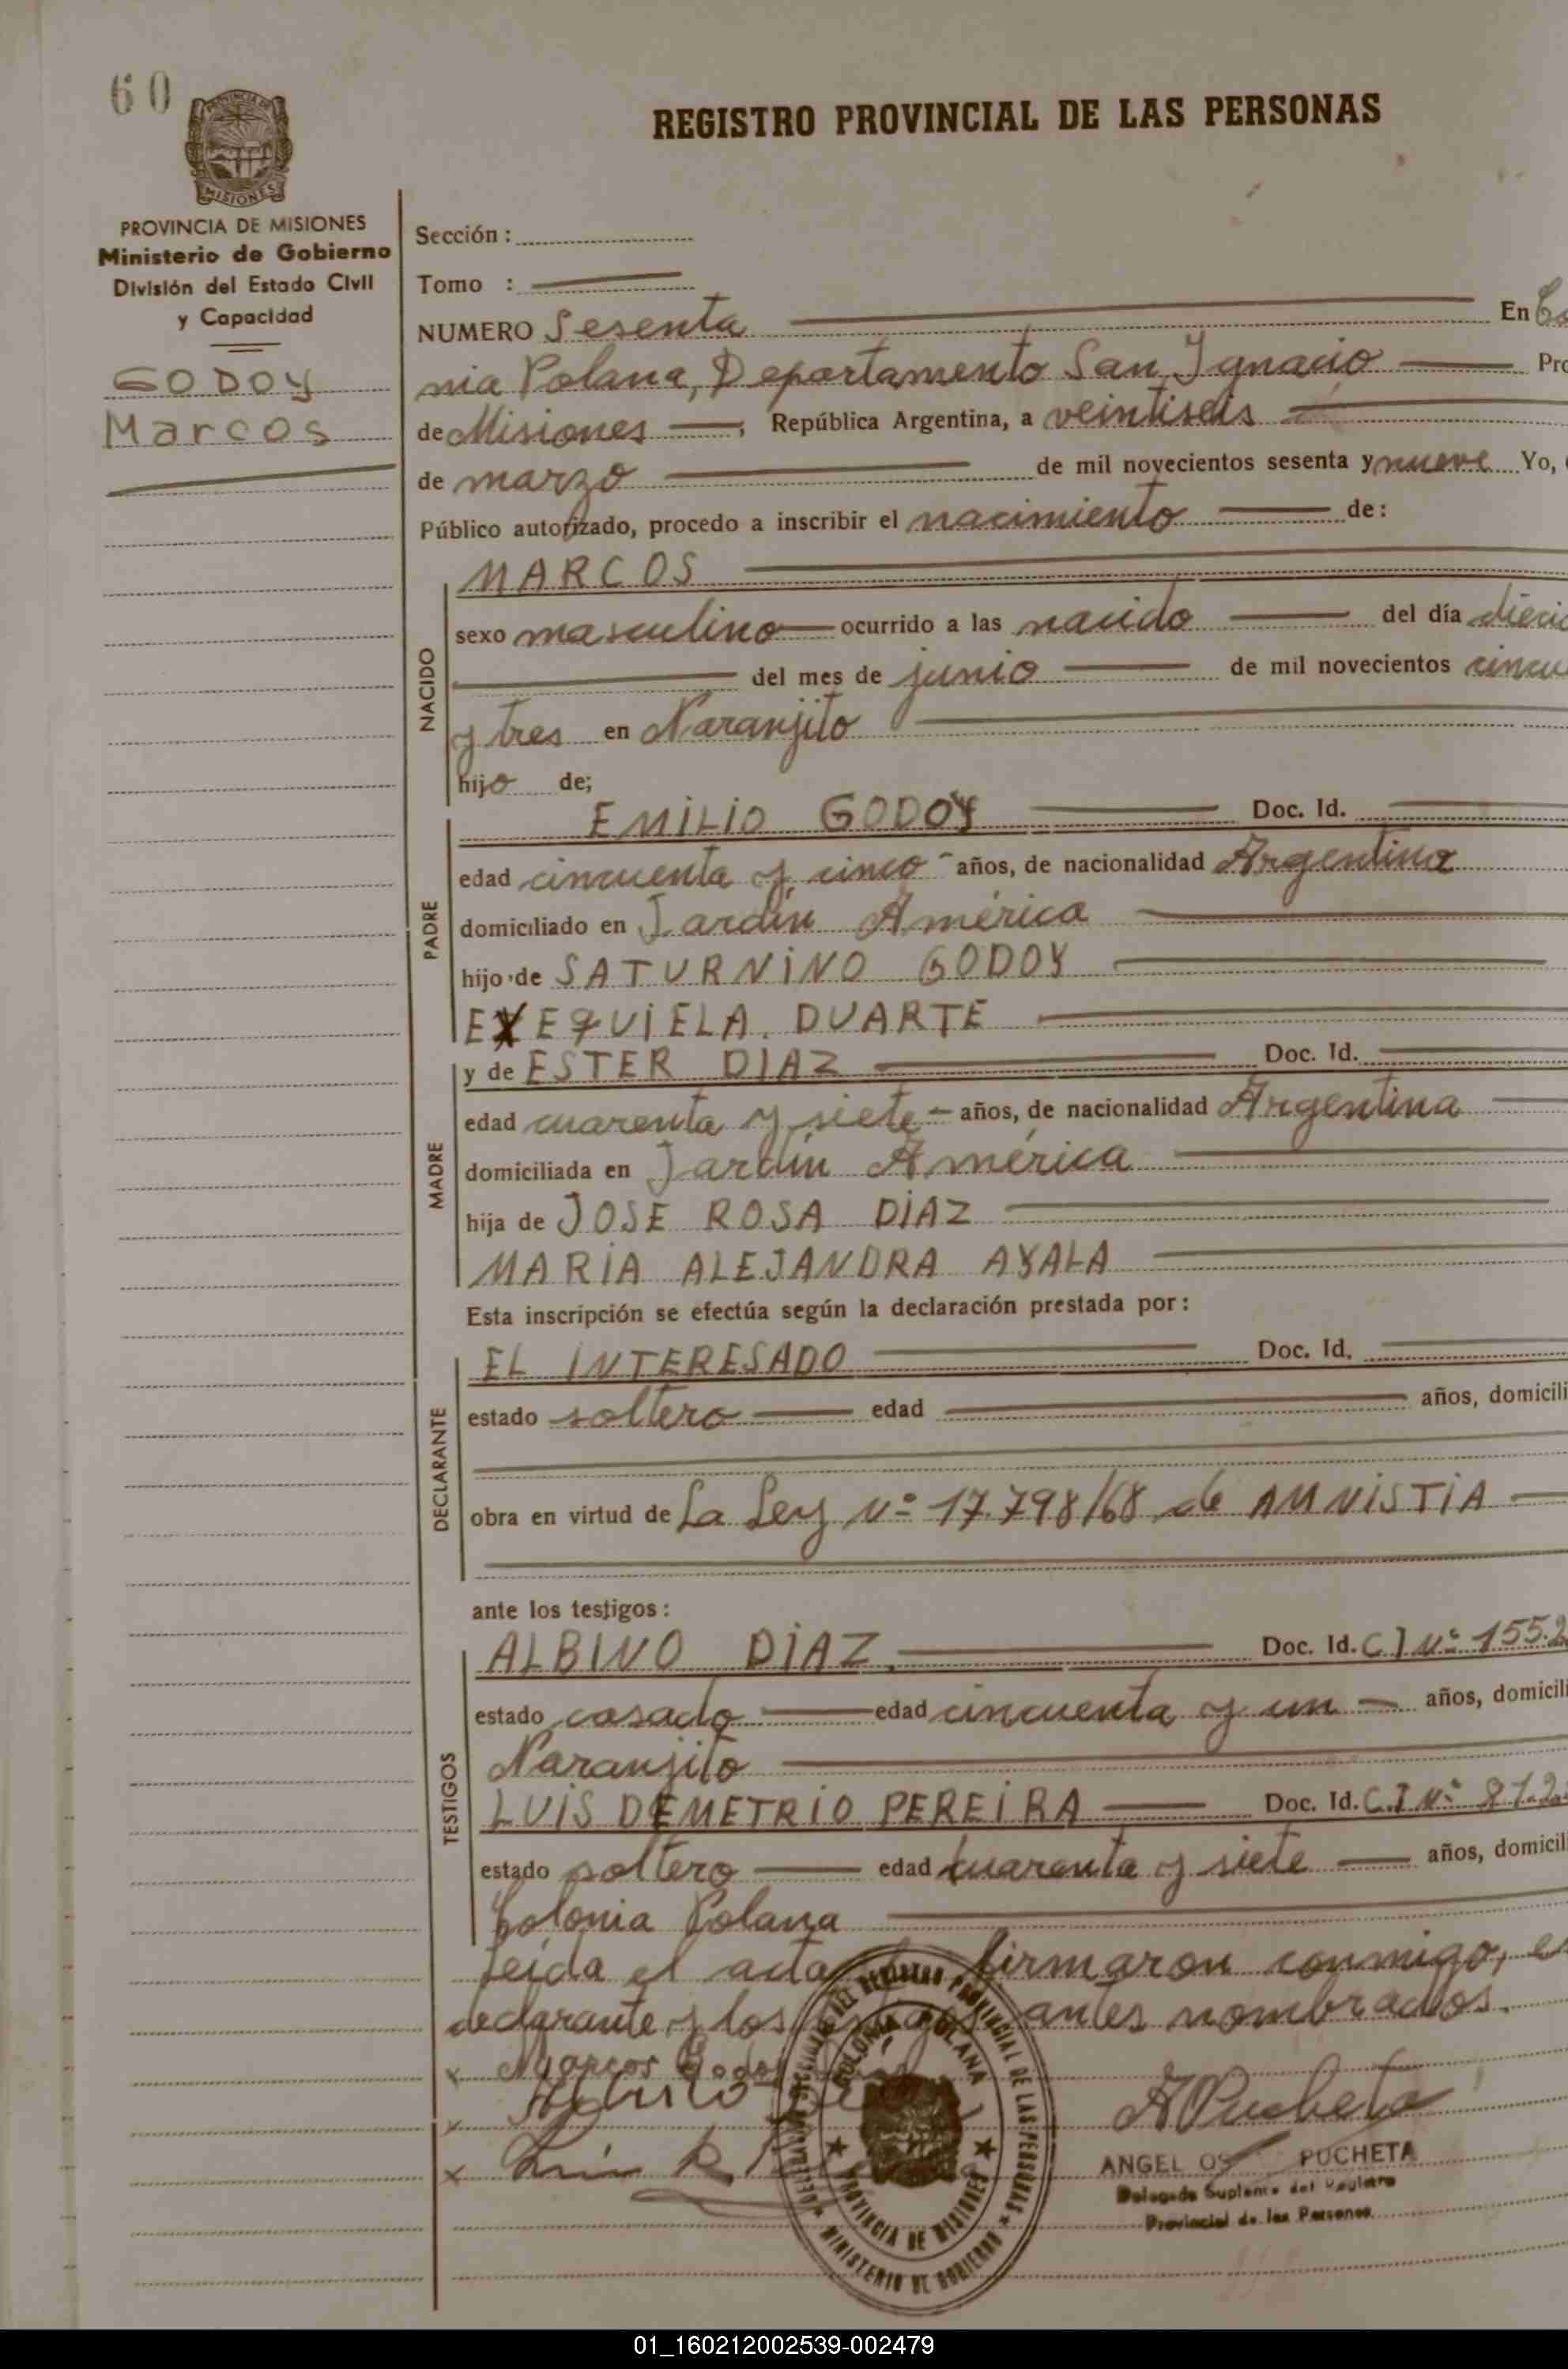 60
REGISTRO PROVINCIAL DE LAS PERSONAS
PROVINCIA DE
MISIONES
PROVINCIA DE MISIONES
Ministerio de Gobierno
División del Estado Civil
y Capacidad
GODOY
Marcos
Sección :
Tomo :
NUMERO Sesenta En Co
nia Polana, Departamento San Ignacio Pro
de Misiones ; República Argentina, a veintiseis
de marzo de mil novecientos sesenta y nueve Yo,
Público autorizado, procedo a inscribir el nacimiento de:
NACIDO
MARCOS
sexo masculino ocurrido a las nacido del día dieci
del mes de junio de mil novecientos cincu
y tres en Naranjito
hijo de;
PADRE
EMILIO GODOY Doc. Id.
edad cincuenta y cinco años, de nacionalidad Argentina
domiciliado en Jardín América
hijo de SATURNINO GODOY
EXEQUIELA. DUARTE
MADRE
y de ESTER DIAZ Doc. Id.
edad cuarenta y siete años, de nacionalidad Argentina
domiciliada en Jardín América
hija de JOSE ROSA DIAZ
MARIA ALEJANDRA AYALA
Esta inscripción se efectúa según la declaración prestada por:
DECLARANTE
EL INTERESADO Doc. Id.
estado soltero edad años, domicili
obra en virtud de La Ley Nº 17.798/68 de AMNISTIA
ante los testigos:
TESTIGOS
ALBINO DIAZ Doc. Id. C I Nº 155.2
estado casado edad cincuenta y un años, domicili
Naranjito
LUIS DEMETRIO PEREIRA Doc. Id. C.I Nº 87.2
estado soltero edad cuarenta y siete años, domicili
Colonia Polana
Leida el acta firmaron conmigo, e
declarante y los testigos antes nombrados.
x Marcos Godoy
x
x Luis R.
DELEGACION DEL REGISTRO PROVINCIAL DE LAS PERSONAS
MINISTERIO DE GOBIERNO
COLONIA POLANA
PROVINCIA DE MISIONES
A Pucheta
ANGEL OS PUCHETA
Delegado Suplente del Registro
Provincial de las Personas
01_160212002539-002479